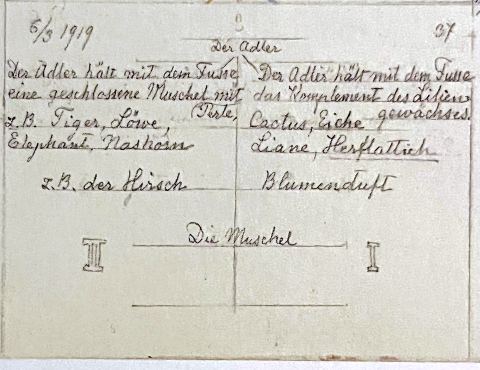 6/3 1919
37
Der Adler
Der Adler hält mit dem Fusse
eine geschlossene Muschel mit
Perle,
z.B. Tiger, Löwe,
Elephant, Nashorn
z.B. der Hirsch
Der Adler hält mit dem Fusse
das Komplement des Lilien
gewächses.
Cactus, Eiche
Liane, Herflattich
Blumenduft
Die Muschel
III
I